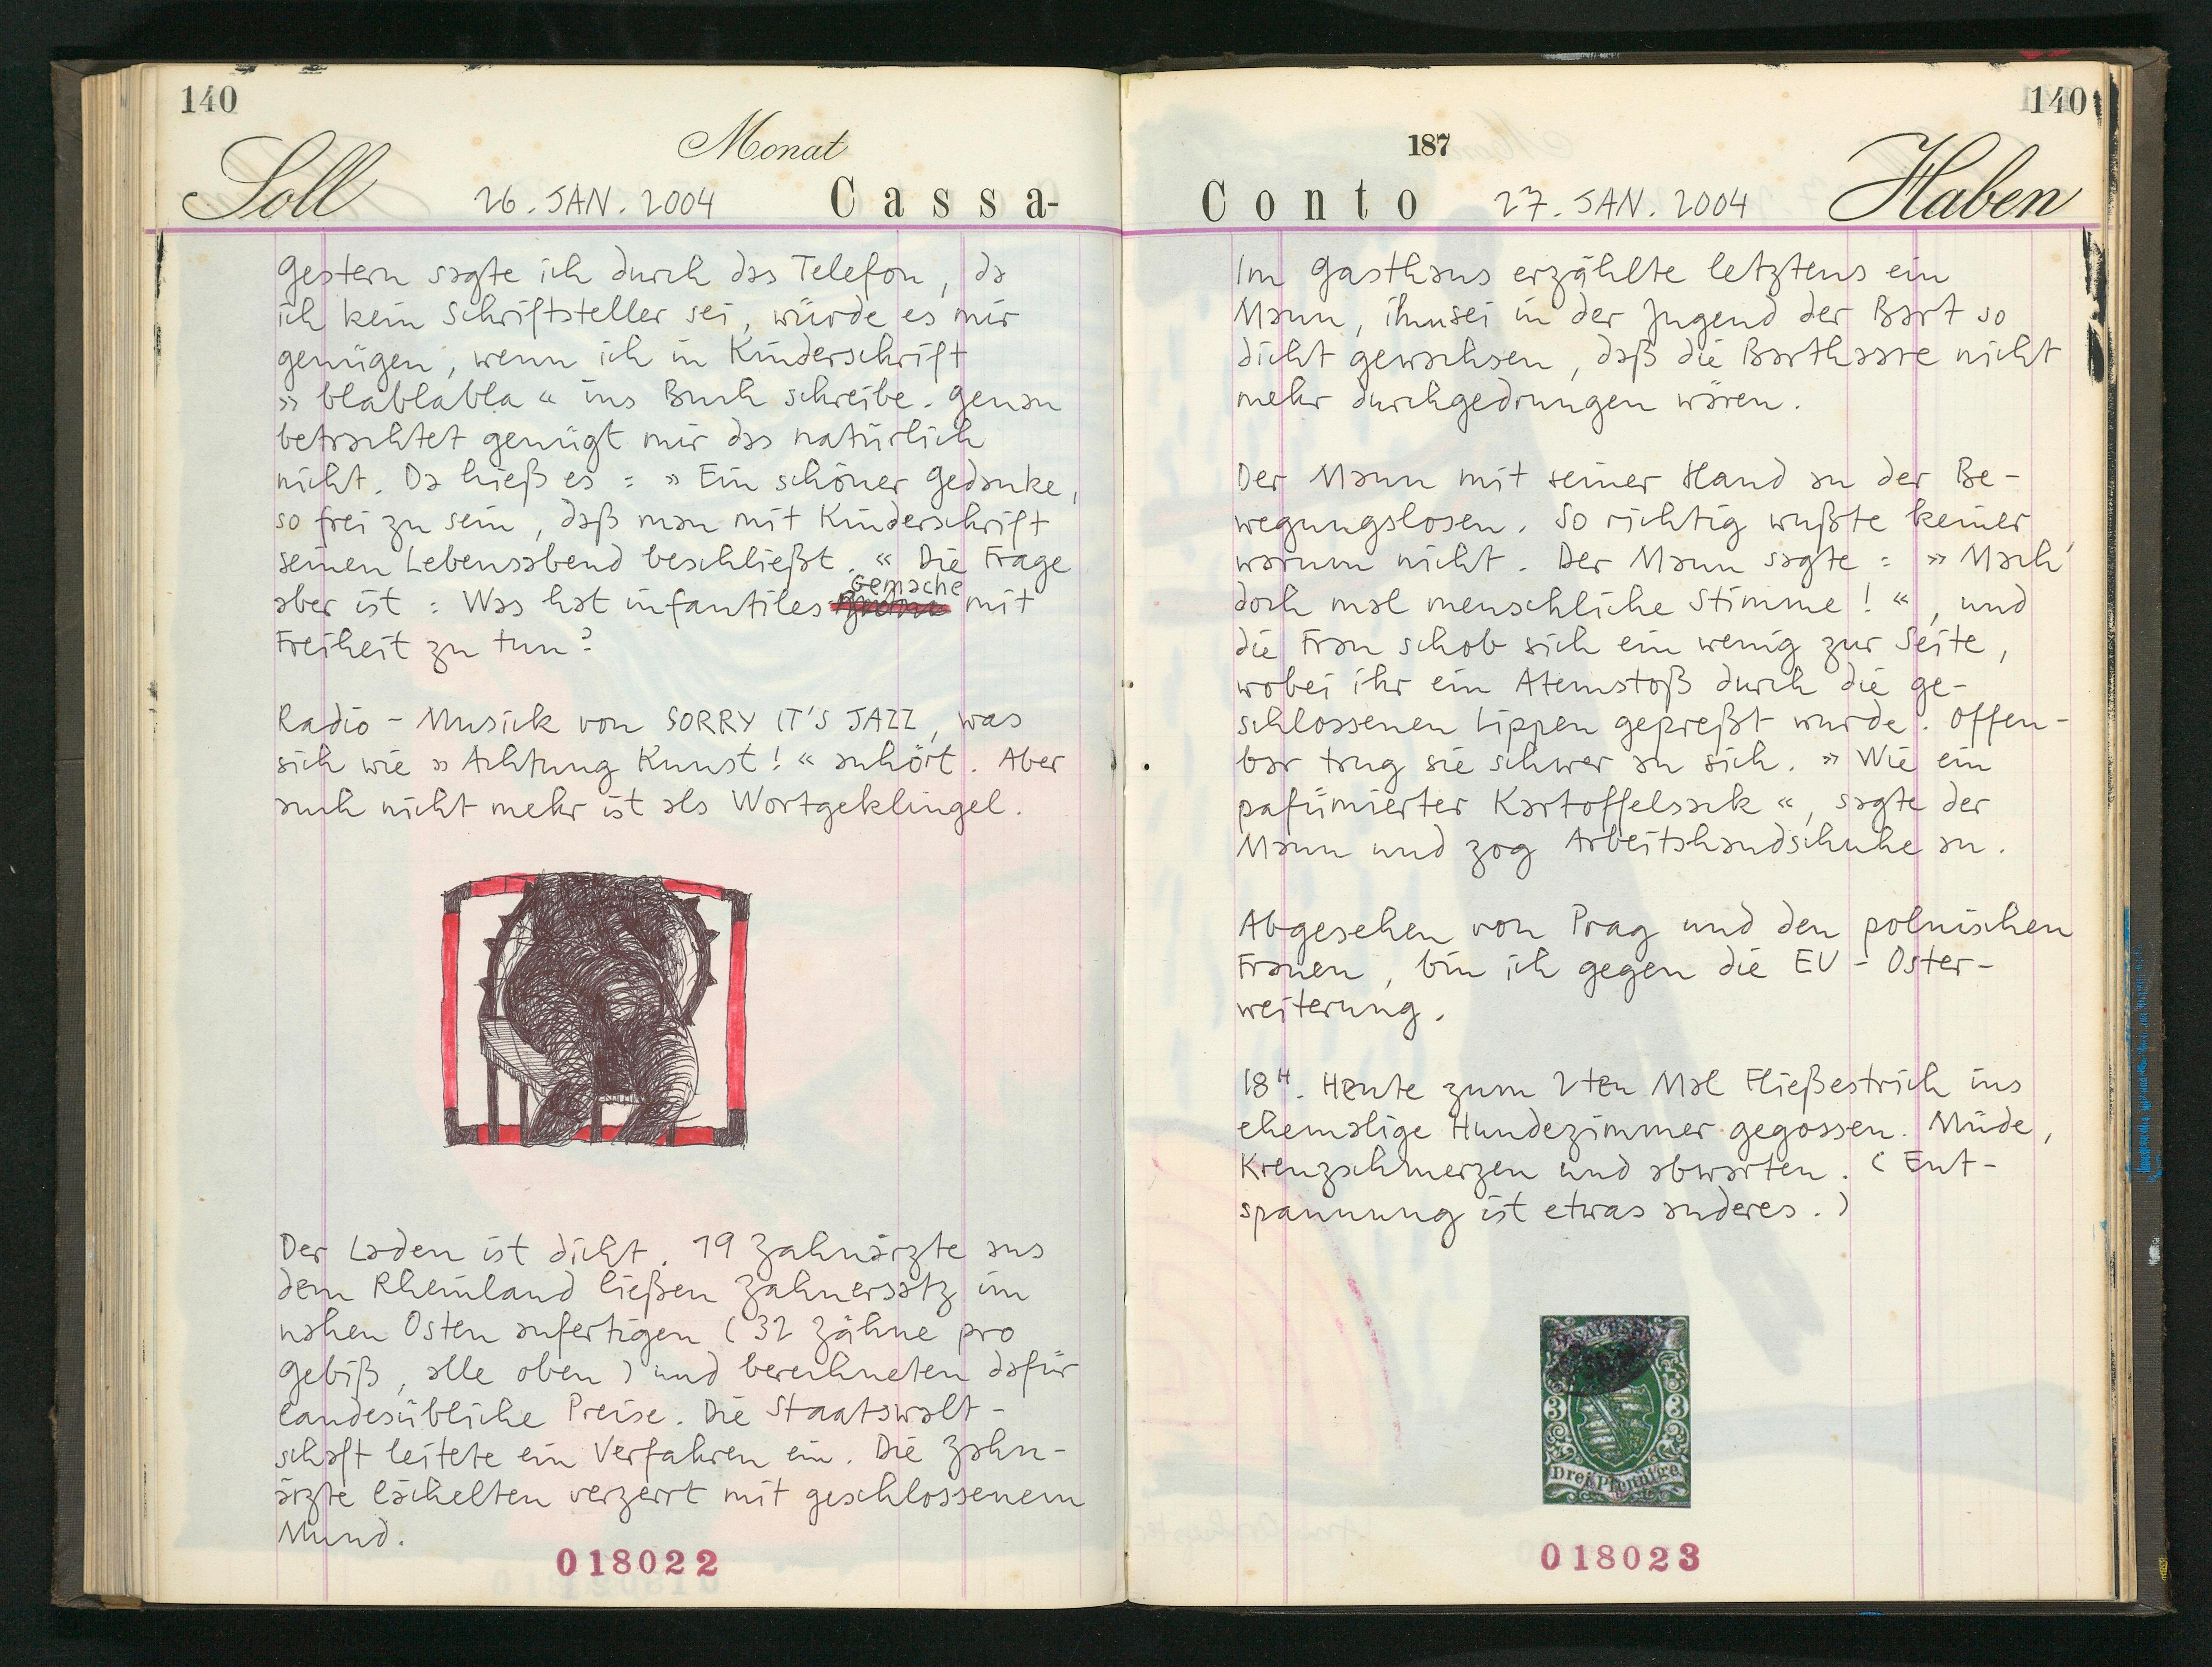 140
Soll
Monat
26. JAN. 2004
Cassa-
Gestern sagte ich durch das Telefon, da
ich kein Schriftsteller sei, würde es mir
genügen, wenn ich in Kinderschrift
» blablabla « ins Buch schreibe. Genau
betrachtet genügt mir das natürlich
nicht. Da hieß es : » Ein schöner Gedanke,
so frei zu sein, daß man mit Kinderschrift
seinen Lebensabend beschließt. « Die Frage
aber ist : Was hat infantiles Gemache mit
Freiheit zu tun?
Radio - Musick von SORRY IT'S JAZZ, was
sich wie » Achtung Kunst! « anhört. Aber
auch nicht mehr ist als Wortgeklingel.
Der Laden ist dicht. 19 Zahnärzte aus
dem Rheinland ließen Zahnersatz im
nahen Osten anfertigen ( 32 Zähne pro
Gebiß, alle oben ) und berechneten dafür
landesübliche Preise. Die Staatswalt-
schaft leitete ein Verfahren ein. Die Zahn-
ärzte lächelten verzerrt mit geschlossenem
Mund.
018022
140
187
Conto
27. JAN. 2004
Haben
Im Gasthaus erzählte letztens ein
Mann, ihm sei in der Jugend der Bart so
dicht gewachsen, daß die Barthaare nicht
mehr durchgedrungen wären.
Der Mann mit seiner Hand an der Be-
wegungslosen. So richtig wußte keiner
warum nicht. Der Mann sagte : » Mach'
doch mal menschliche Stimme! «, und
die Frau schob sich ein wenig zur Seite,
wobei ihr ein Atemstoß durch die ge-
schlossenen Lippen gepreßt wurde. Offen-
bar trug sie schwer an sich. » Wie ein
pafümierter Kartoffelsack «, sagte der
Mann und zog Arbeitshandschuhe an.
Abgesehen von Prag und den polnischen
Frauen, bin ich gegen die EU - Oster-
weiterung.
18H. Heute zum 2ten Mal Fließestrich ins
ehemalige Hundezimmer gegossen. Müde,
Kreuzschmerzen und abwarten. ( Ent-
spannung ist etwas anderes. )
3 3
Drei Pfennige
018023